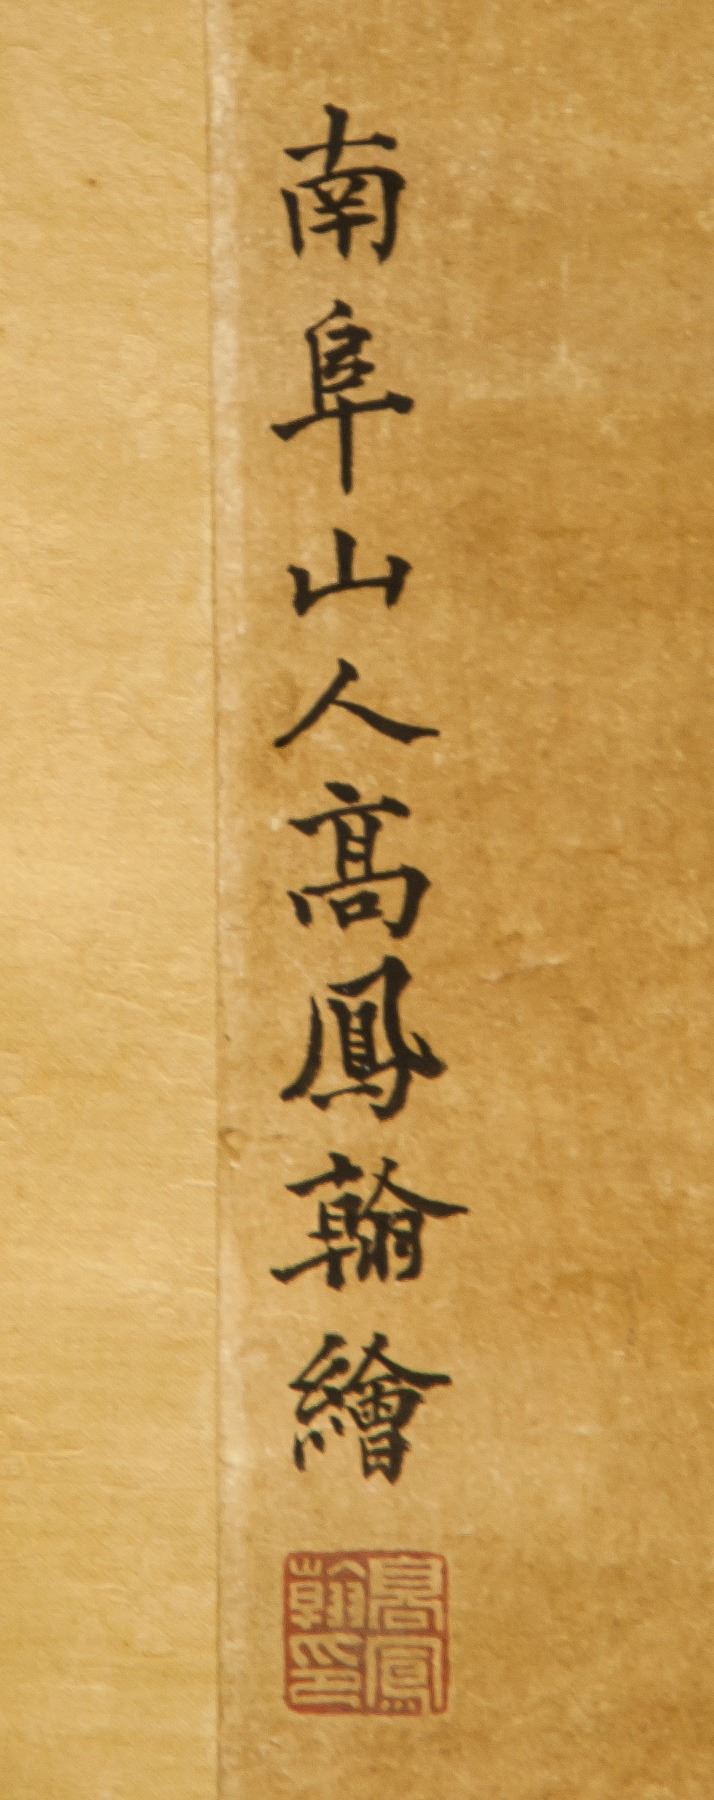 南阜山人高鳳翰繪
高鳳
翰印